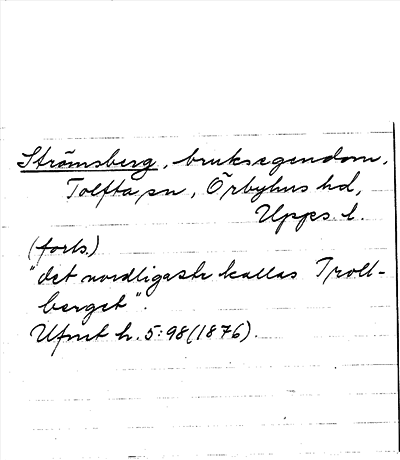 Strömsberg, bruksegendom,
Tolfta sn, Örbyhus hd,
Upps. l.
(forts.)
"det nordligaste kallas Troll-
berget".
Ufmt h. 5:98 (1876).